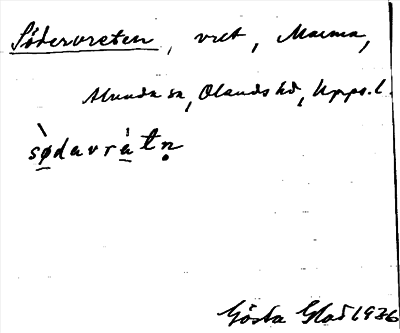 Södervreten, vret, Marma,
Alunda sn, Olands hd, Upps. l.
sø̀davràtn̥
Gösta Glad 1936